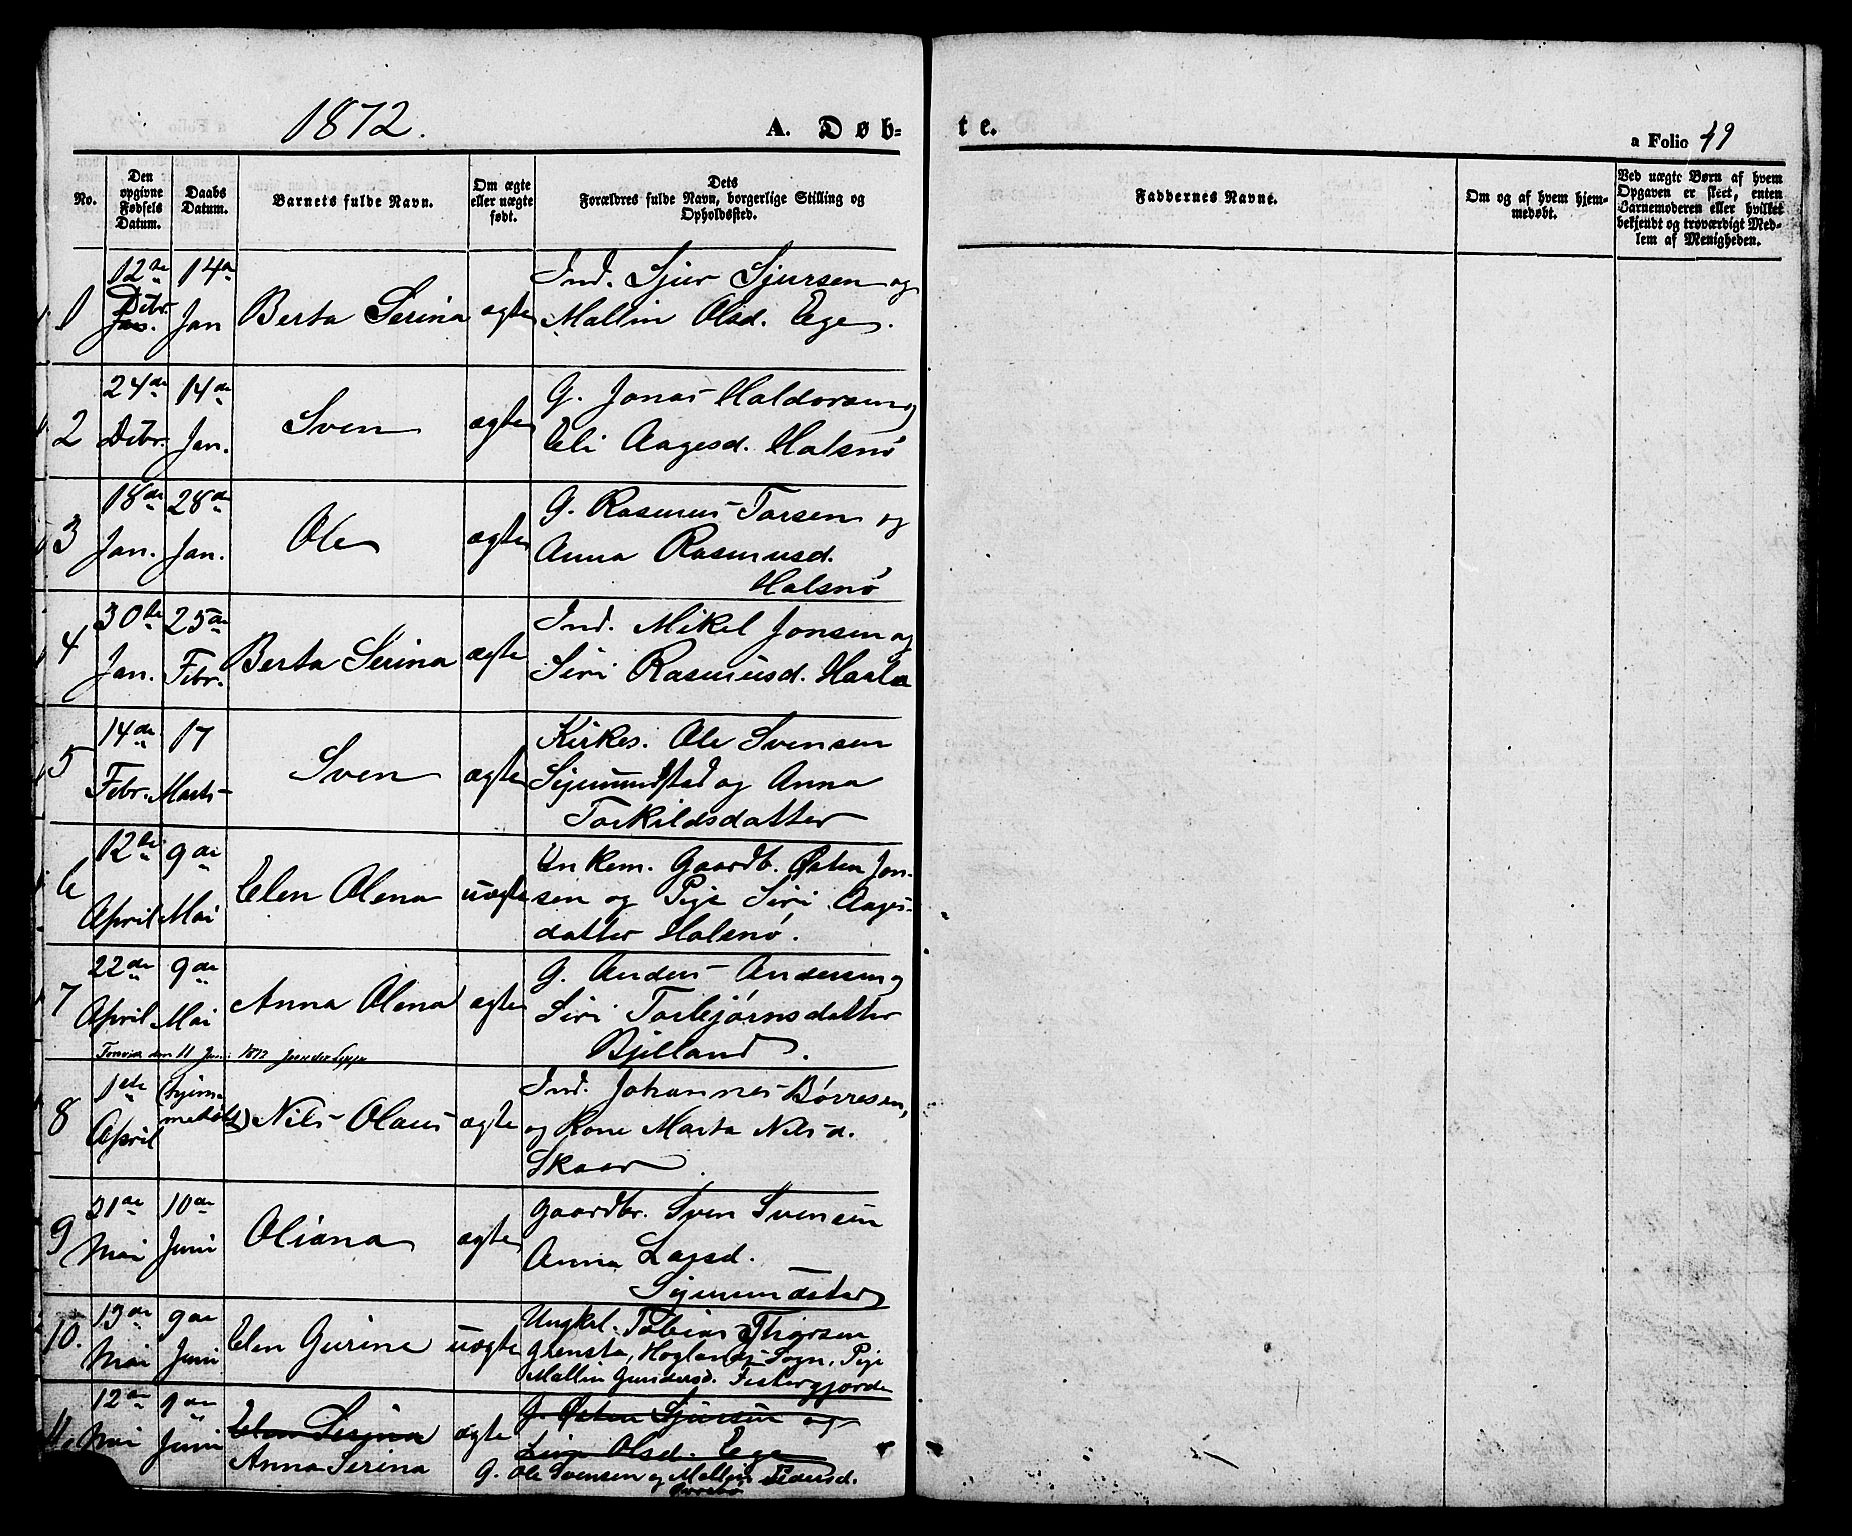 1872.
A. Døb-
te.
a Folio 49
No.
Den opgivne Fødsels Datum.
Daabs Datum.
Barnets fulde Navn.
Om ægte eller uægte født.
Dets
Forældres fulde Navn, borgerlige Stilling og Opholdssted.
Faddernes Navne.
Om og af hvem hjemmedøbt.
Ved uægte Børn af hvem Opgaven er skeet, enten Barnemoderen eller hvilket bekjendt og troværdigt Medlem af Menigheden.
1 12te Decbr. Jan. 14de Jan Berta Serina ægte Ind. Sjur Sjursen og
Mallin Olsd. Ege.
2 24de Decbr. 14de Jan. Sven ægte G. Jonas Haldorsen og
Eli Aagesd. Halsnø
3 18de Jan. 28de Jan. Ole ægte G. Rasmus Tarsen og
Anna Rasmusd.
Halsnø
4 30te Jan. 25de Febr. Berta Serina ægte Ind. Mikel Jonsen og
Siri Rasmusd. Haala
5 14de Febr. 17 Marts Sven ægte Kirkes. Ole Svensen
Sigmundstad og Anna
Torkildsdatter
6 12te April 9de Mai Elen Olena uægte Unkem. Gaardb. Østen Jon-
sen og Pige Siri Aages-
datter Halsnø.
7 22de April 9de Mai Anna Olena ægte G. Anders Andersen og
Siri Torbjørnsdatter
Bjelland.
8 1ste April (hjemmedøbt) Nils Olaus ægte Ind. Johannes Børresen,
og Kone Marta Nilsd.
Skaar.
9 21de Mai 10de Juni Oliana ægte Gaardbr. Sven Svensen
Anna Larsd.
Sigmundstad
10. 13de Mai 9de Juni Elen Gurine uægte Ungkel. Tobias Tharsen
Grensta, Hoglands Sogn, Pige
Mallin Gundersd. Fistergjorde
11 12de Mai 9de Juni Elen Serina ægte G. Østen Sjursen og
Lina Olsd. Ege
Anna Serina G. Ole Svensen og Mallin Pedersd.